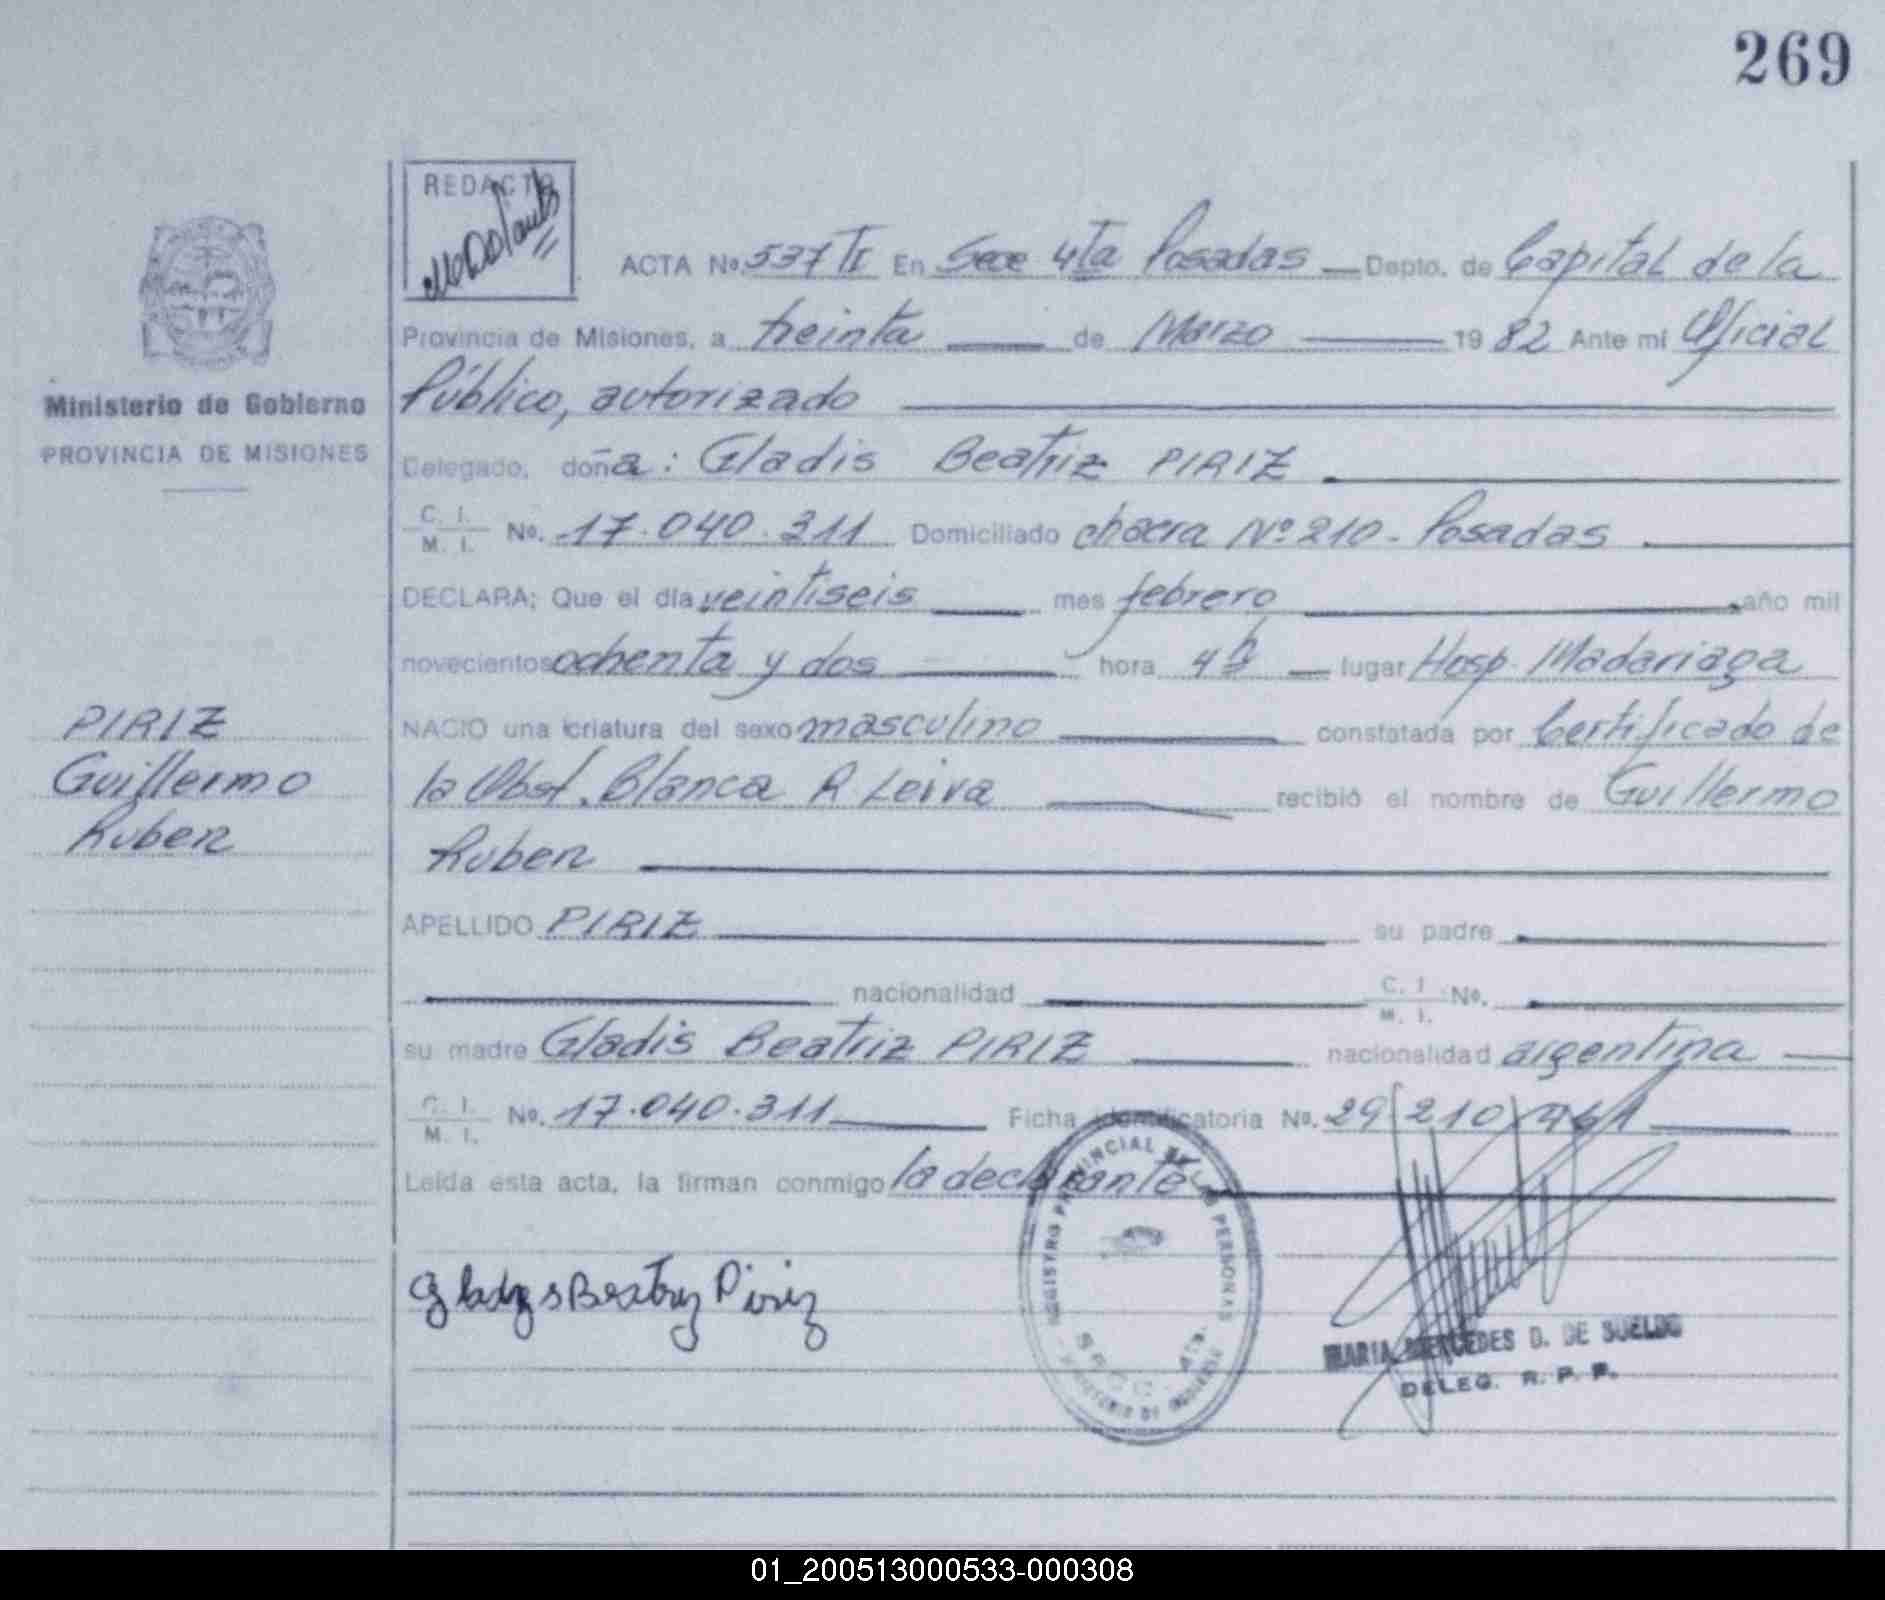 269
REDACTO
ACTA No. 537 TI En Secc 4ta Posadas Depto. de Capital de la
Provincia de Misiones, a treinta de Marzo 1982 Ante mí Oficial
Público, autorizado
Ministerio de Gobierno
PROVINCIA DE MISIONES
Delegado, doña: Gladis Beatriz PIRIZ
C. I.
M. I. No. 17.040.311 Domiciliado chacra Nº 210 - Posadas
DECLARA; Que el día veintiseis mes febrero año mil
novecientos ochenta y dos hora 4 h lugar Hosp. Madariaga
NACIO una criatura del sexo masculino constatada por Certificado de
la Obst. Blanca R Leiva recibió el nombre de Guillermo
Ruben
PIRIZ
Guillermo
Ruben
APELLIDO PIRIZ su padre
nacionalidad C. I. M. I. No.
su madre Gladis Beatriz PIRIZ nacionalidad argentina
C. I.
M. I. No. 17.040.311 Ficha identificatoria No. 29.210.461
Leída esta acta, la firman conmigo la declarante
Gladys Beatriz Piriz
REGISTRO PROVINCIAL DE LAS PERSONAS
MARIA MERCEDES D. DE SUELDO
DELEG. R. P. P.
01_200513000533-000308